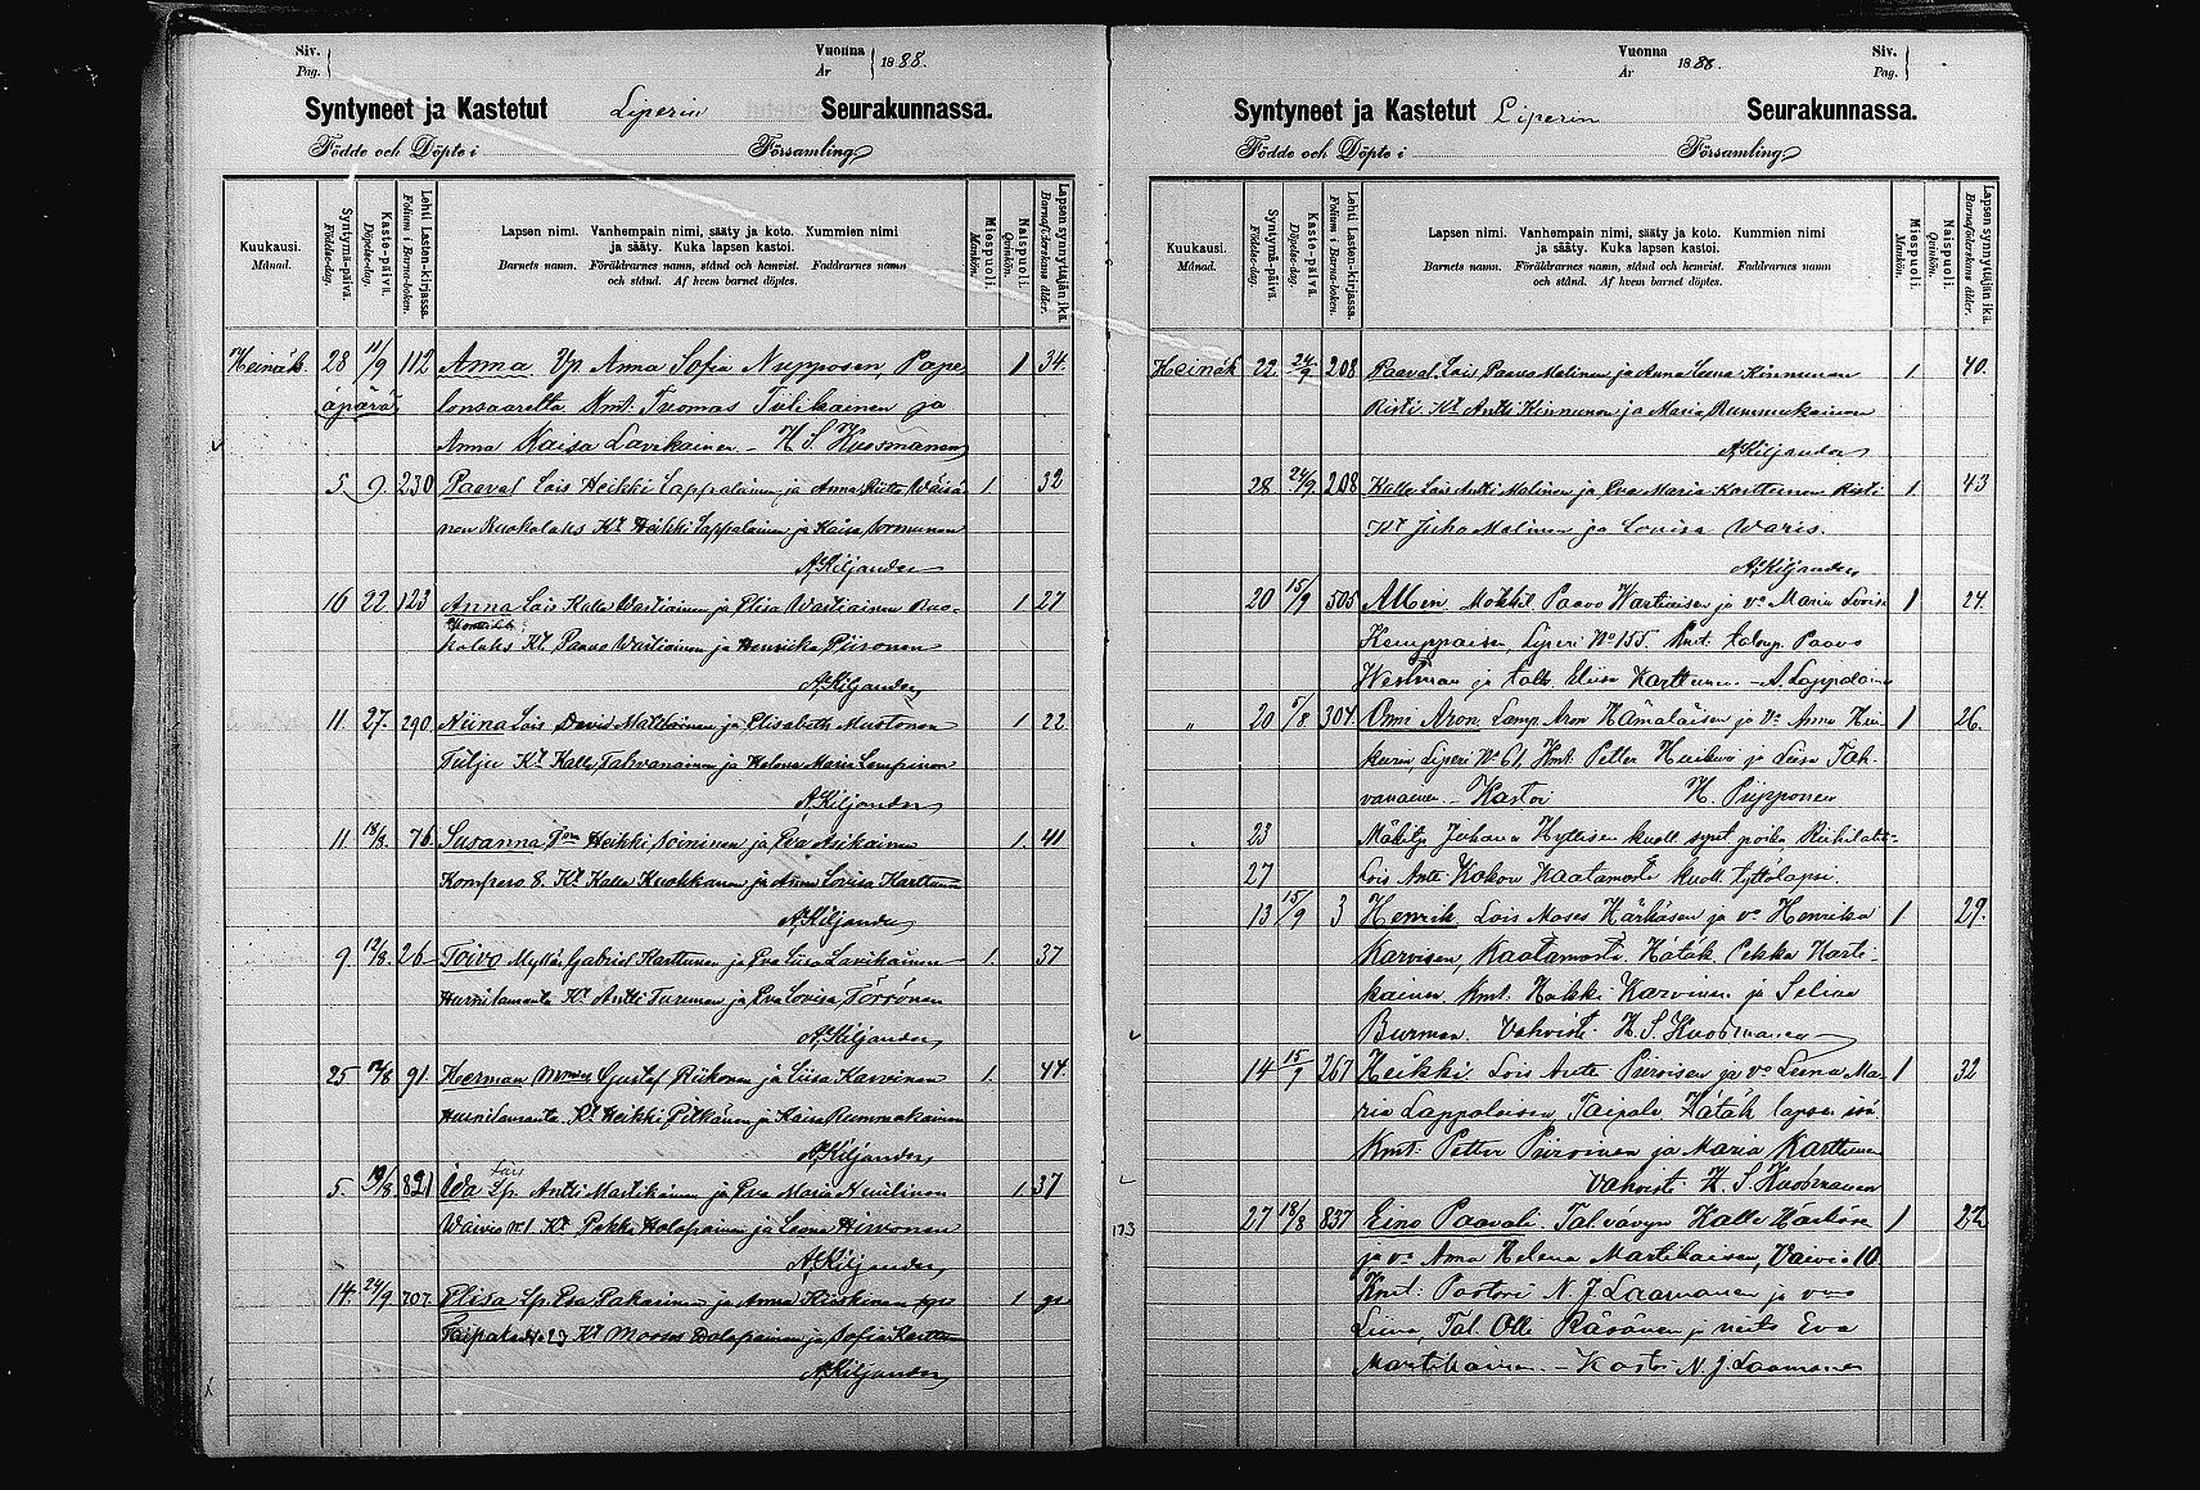 Siv.
Pag.
Vuonna
År
1888.
Syntyneet ja Kastetut Liperin Seurakunnassa.
Födde och Döpte i Församling
Kuukausi.
Månad.
Syntymä-päivä.
Födelse-dag.
Kaste-päivä.
Döpelse-dag.
Lehti Lasten-kirjassa.
Folium i Barna-boken.
Lapsen nimi. Vanhempain nimi, sääty ja koto. Kummien nimi
ja sääty. Kuka lapsen kastoi.
Barnets namn. Föräldrarnes namn, stånd och hemvist. Faddrarnes namn
och stånd. Af hvem barnet döptes.
Miespuoli.
Mankön.
Naispuoli.
Qvinkön.
Lapsen synnyttäjän ikä.
Barnaföderskans ålder.
Heinäk. 28 11/9 112 Anna. Yp. Anna Sofia Nupponen, Pape 1 34.
äpärä lonsaarelta. Kmt: Tuomas Tiilikainen ja
Anna Kaisa Lavikainen - H S Kuosmanen
5. 9. 230 Paaval Lois Heikki Lappalainen ja Anna Riitta Wäisä 1. 32
nen Ruokolaks Kt Heikki Lappalainen ja Kaisa Sormunen
A. Kiljander
16 22 123 Anna Lois Kalle Wartiainen ja Elisa Wartiainen Ruo- 1 27
kolaks Kt. Paavo Wartiainen ja Henriika Piironen
A. Kiljander
11. 27. 290 Niina Lois David Malinen ja Elisabeth Mustonen 1 22
Kt Kalle Tahvanainen ja Helena Maria Lempinen
A. Kiljander
11. 18/8. 76. Susanna Heikki Soininen ja Eva Asikainen 1. 41
Kompero 8. Kt Kalle Kuokkanen ja Anna Lovisa Karttunen
A. Kiljander
9. 12/8. 26 Toivo Gabriel Karttunen ja Eva Liisa Lavikainen 1. 37
Kt Antti Turunen ja Eva Lovisa Törrönen
A. Kiljander
25 91. Herman Gustaf Riikonen ja Liisa Karvinen 1. 44.
Kt Heikki Pitkänen ja Kaisa Rummukainen
A. Kiljander
Lois
5. 19/8. 821 Ida Antti Martikainen ja Eva Maria 1. 37
Waivio Kt Pekka Holopainen ja Leena Hirvonen
A. Kiljander
14. 24/9 707. Elisa Lp. Eva Pakarinen ja Anna Kiiskinen 1
Taipale Kt Mooses Holopainen ja Sofia Karttunen
A. Kiljander
Vuonna
År
1888.
Siv.
Pag.
Syntyneet ja Kastetut Liperin Seurakunnassa.
Födde och Döpte i Församling
Kuukausi.
Månad.
Syntymä-päivä.
Födelse-dag.
Kaste-päivä.
Döpelse-dag.
Lehti Lasten-kirjassa.
Folium i Barna-boken.
Lapsen nimi. Vanhempain nimi, sääty ja koto. Kummien nimi
ja sääty. Kuka lapsen kastoi.
Barnets namn. Föräldrarnes namn, stånd och hemvist. Faddrarnes namn
och stånd. Af hvem barnet döptes.
Miespuoli.
Mankön.
Naispuoli.
Qvinkön.
Lapsen synnyttäjän ikä.
Barnaföderskans ålder.
Heinäk 22. 24/9 208 Paaval. Lois Paavo Malinen ja Anna Leena Kinnunen 1. 40.
Risti Kt Antti Kinnunen ja Maria Rummukainen
A. Kiljander
28. 24/9. 208 Kalle Lois Antti Malinen ja Eva Maria Karttunen Risti 1. 43
Kt Juho Malinen ja Lovisa Waris.
A. Kiljander
20 15/9 505 Albin. Mökkil. Paavo Wartiaisen ja vo Maria Lovisa 1 24.
Kemppaisen, Liperi No 155. Kmt: talonp. Paavo
Westman ja Eliisa Karttunen. - A. Lappalainen
" 20 5/8. 304. Onni Aron. Lamp. Aron Hämäläisen ja Vo Anna Hui- 1 26.
kurin, Liperi No 61, Kmt: Petter Huikuri ja Liisa Tah-
vanainen. - Kastoi H. Piipponen
" 23 Mäkitp. Juhana Hyttisen kuoll. synt poika, Riihilahti
27 Lois Antti Kokon Kaatamosta kuoll. tyttölapsi.
13 15/9 3 Henrik. Lois Moses Härkösen ja vo Henrika 1. 29.
Karvisen, Kaatamosta. Hätäk. Pekka Marti-
kainen. Kmt: Heikki Karvinen ja Selina
Burman. Vahvisti H. S. Kuosmanen
14 15/9 267 Heikki. Lois Antti Piiroisen ja vo Leena Ma- 1 32
ria Lappalaisen, Taipale. Hätäk lapsen isä.
Kmt: Petter Piiroinen ja Maria Karttunen
Vahvisti H. S. Kuosmanen
173 27 18/8 837 Eino Paavali. Tal. vävyn Kalle Härkösen 1 22
ja vo Anna Helena Martikaisen, Vaivio 10.
Kmt: Pastori N. J. Laamanen ja vmo
Liina, Tal. Olli Räsänen ja neito Eva
Martikainen. - Kastoi N. J. Laamanen